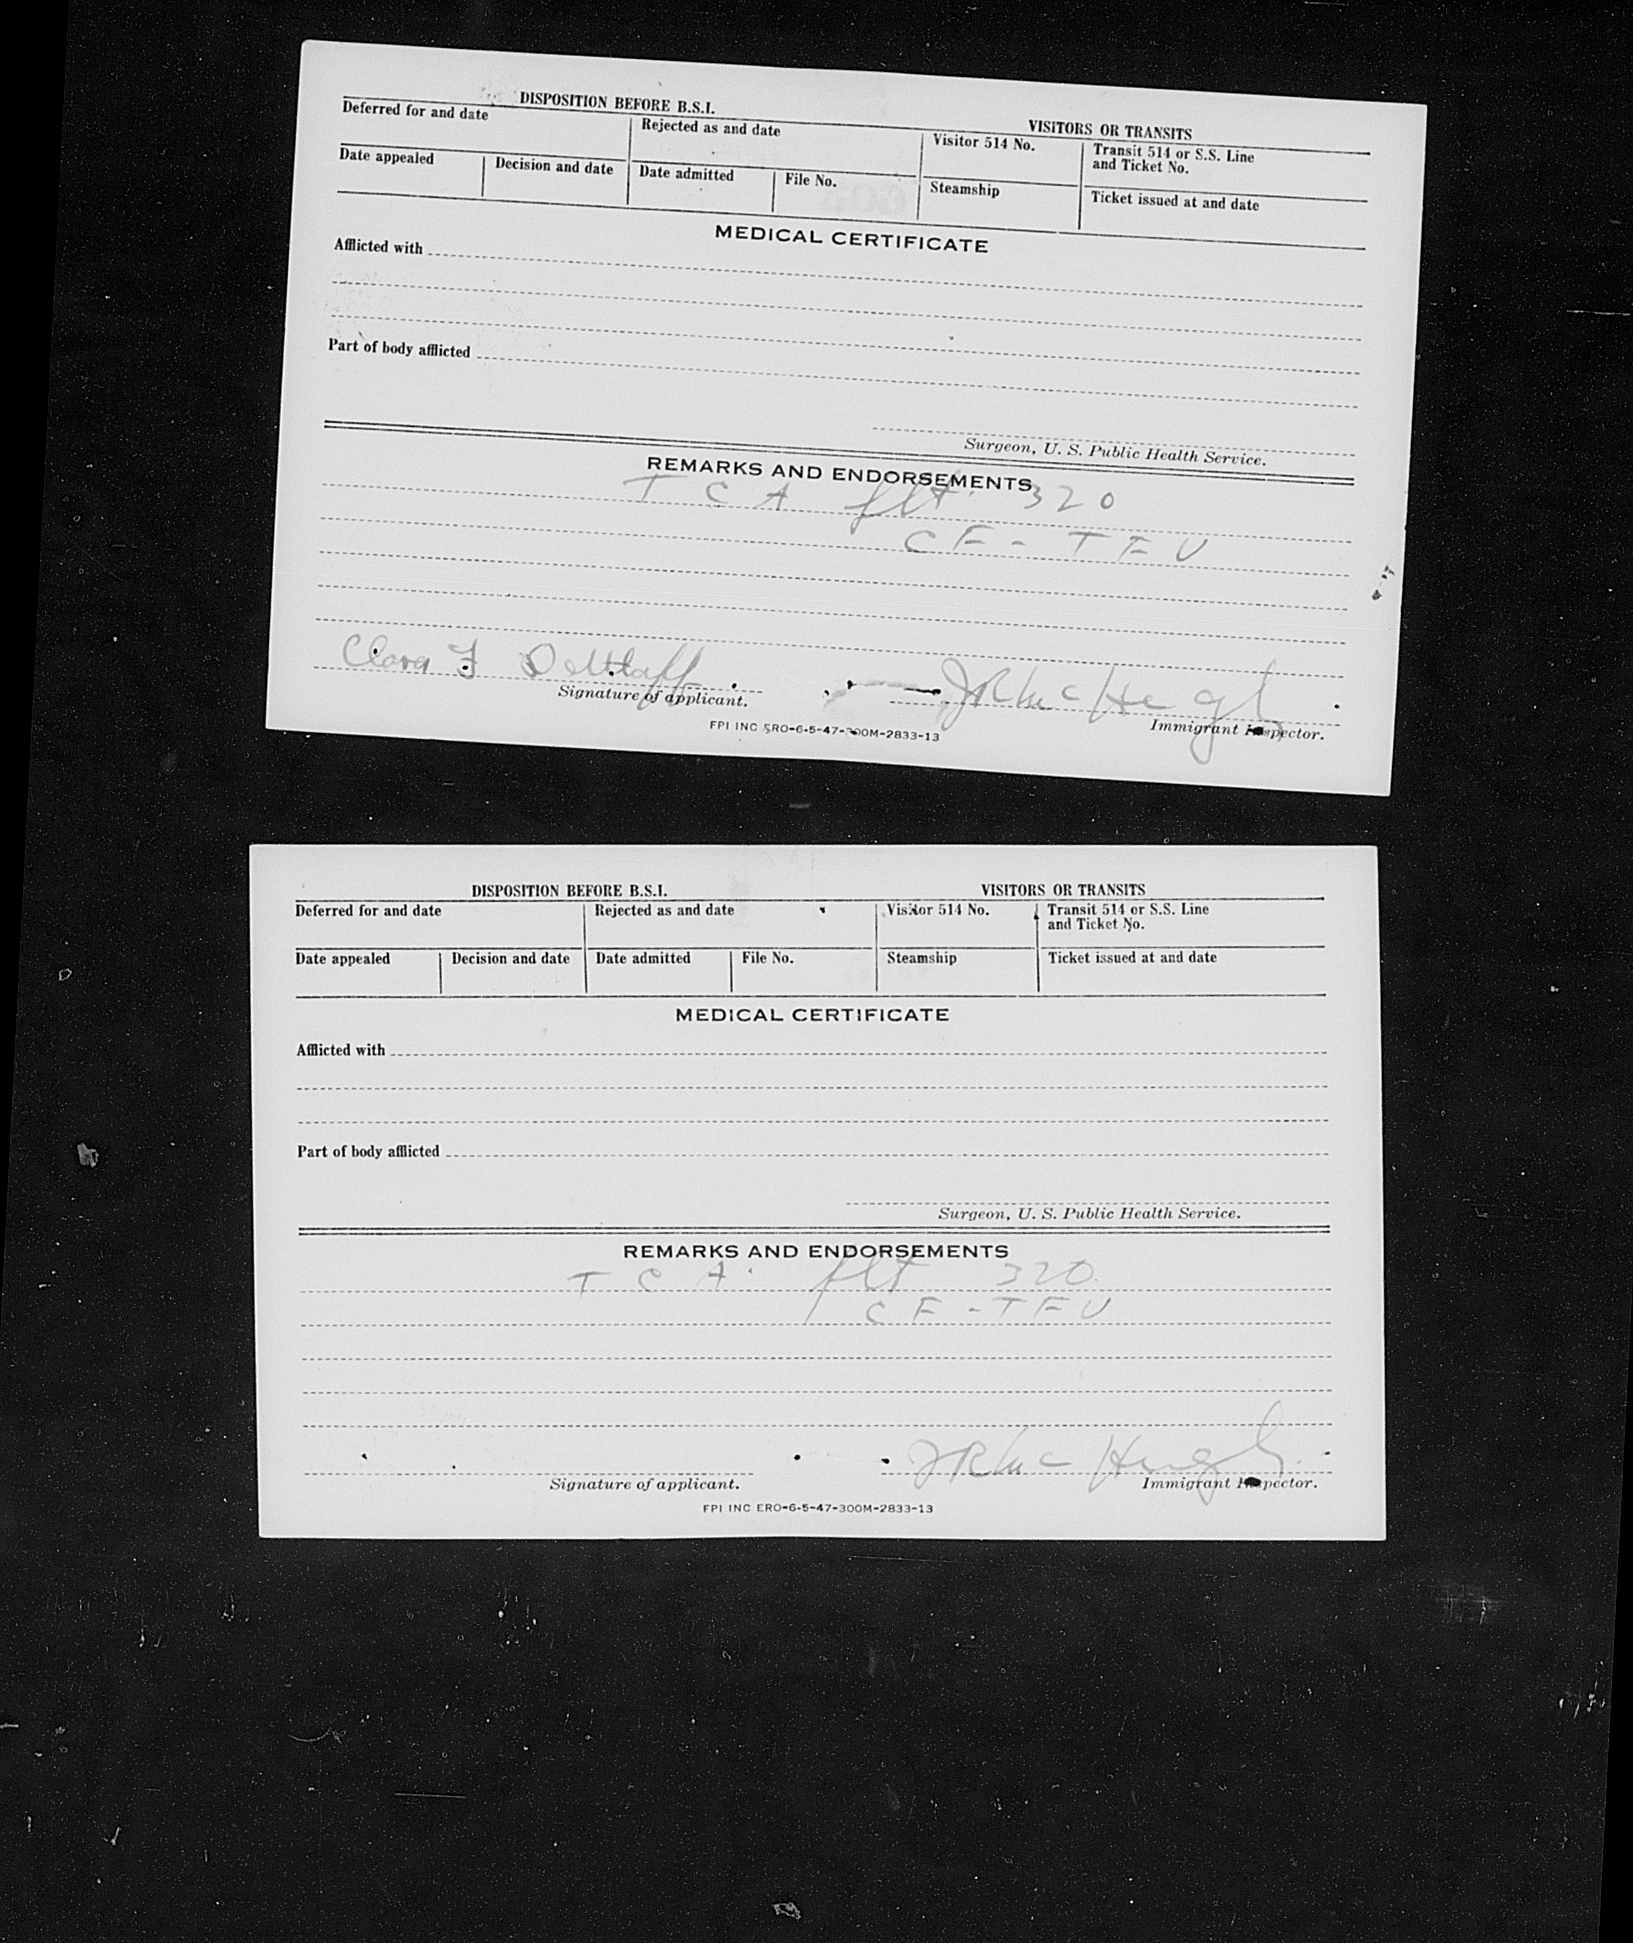 DISPOSITION BEFORE B.S.I.
VISITORS OR TRANSITS
Deferred for and date
Rejected as and date
Visitor 514 No.
Transit 514 or S.S. Line
and Ticket No.
Date appealed
Decision and date
Date admitted
File No.
Steamship
Ticket issued at and date
MEDICAL CERTIFICATE
Afflicted with
Part of body afflicted
Surgeon, U. S. Public Health Service.
REMARKS AND ENDORSEMENTS
T C A flt. 320
CF - TFU
Clara F
Signature of applicant.
Immigrant Inspector.
FPI INC ERO-6-5-47-300M-2833-13
DISPOSITION BEFORE B.S.I.
VISITORS OR TRANSITS
Deferred for and date
Rejected as and date
Visitor 514 No.
Transit 514 or S.S. Line
and Ticket No.
Date appealed
Decision and date
Date admitted
File No.
Steamship
Ticket issued at and date
MEDICAL CERTIFICATE
Afflicted with
Part of body afflicted
Surgeon, U. S. Public Health Service.
REMARKS AND ENDORSEMENTS
T C A. flt 320.
CF - TFU
Signature of applicant.
Immigrant Inspector.
FPI INC ERO-6-5-47-300M-2833-13